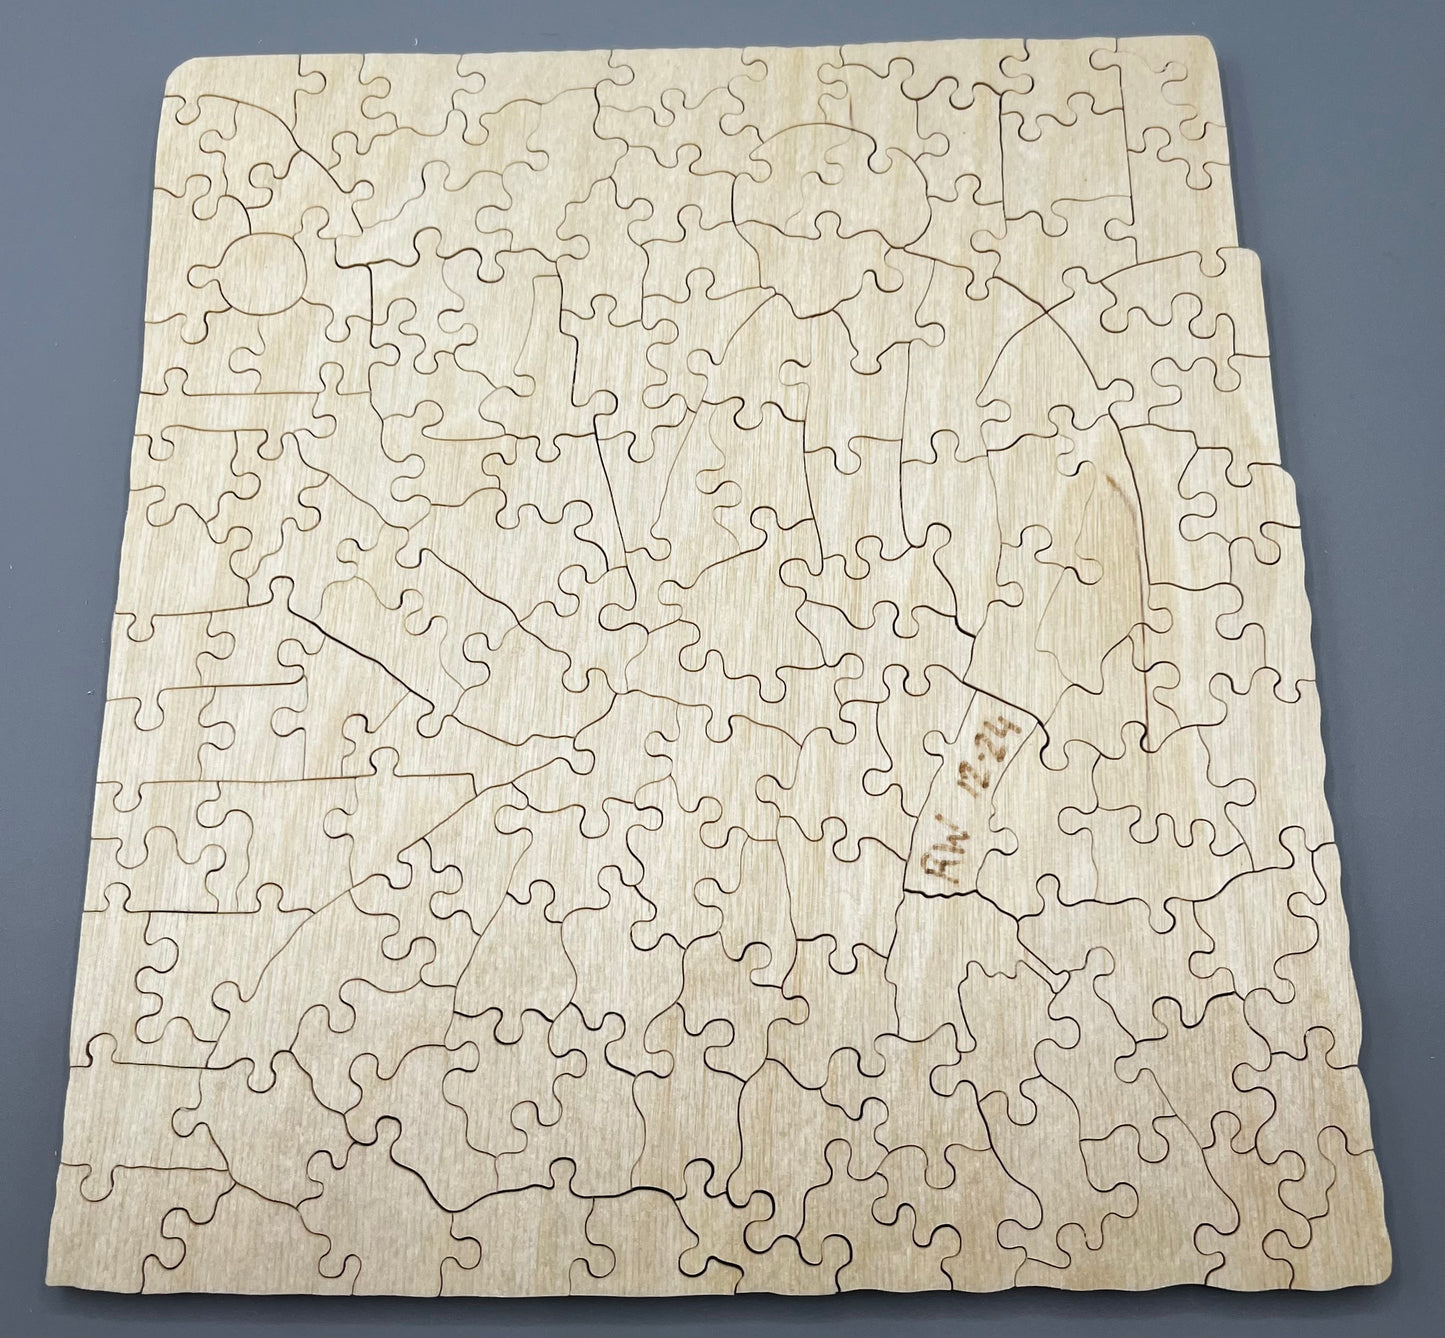 RW 12-24